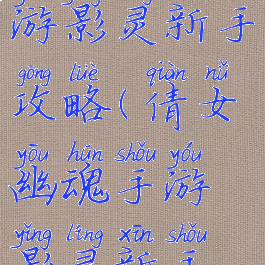 游影灵新手
gōng lüè qiàn nǚ
攻略(倩女
yōu hún shǒu yóu
幽魂手游
yǐng líng xīn shǒu
影灵新手